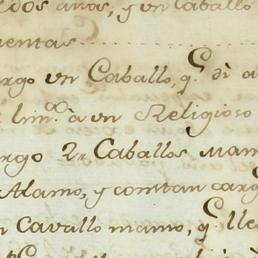 dos años, y un Caballo
uentas
rgo un Caballo, q.e di a
Lim.na à un Religioso
rgo 2. Caballos man
Alamo, y constan carg
n Cavallo manso, q.e lle